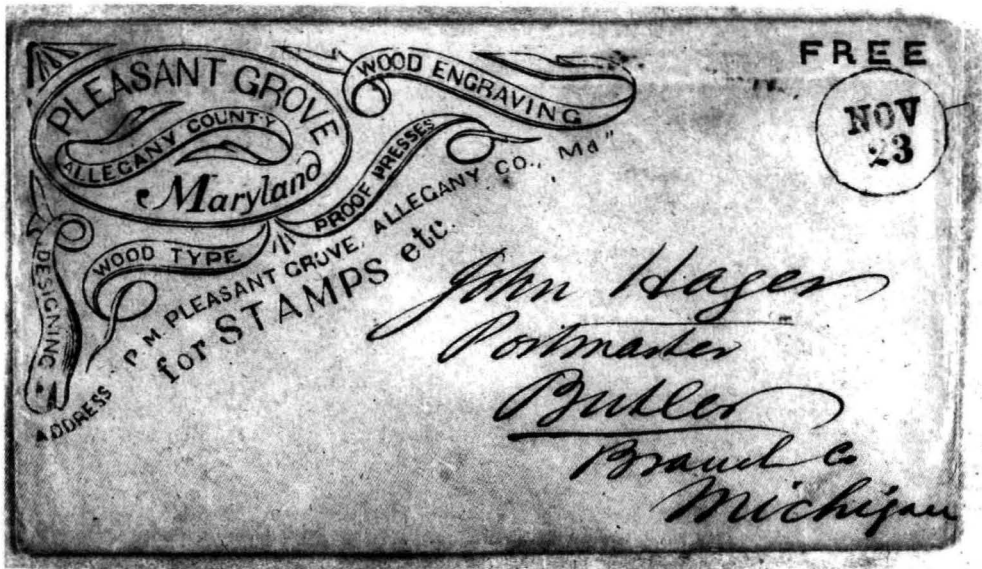 PLEASANT GROVE
ALLEGANY COUNTY
Maryland
WOOD ENGRAVING
PROOF PRESSES
WOOD TYPE
DESIGNING
ADDRESS "P. M. PLEASANT GROVE, ALLEGANY CO., Md"
for STAMPS etc.
FREE
NOV
23
John Hager
Postmaster
Butler
Branch Co
Michigan